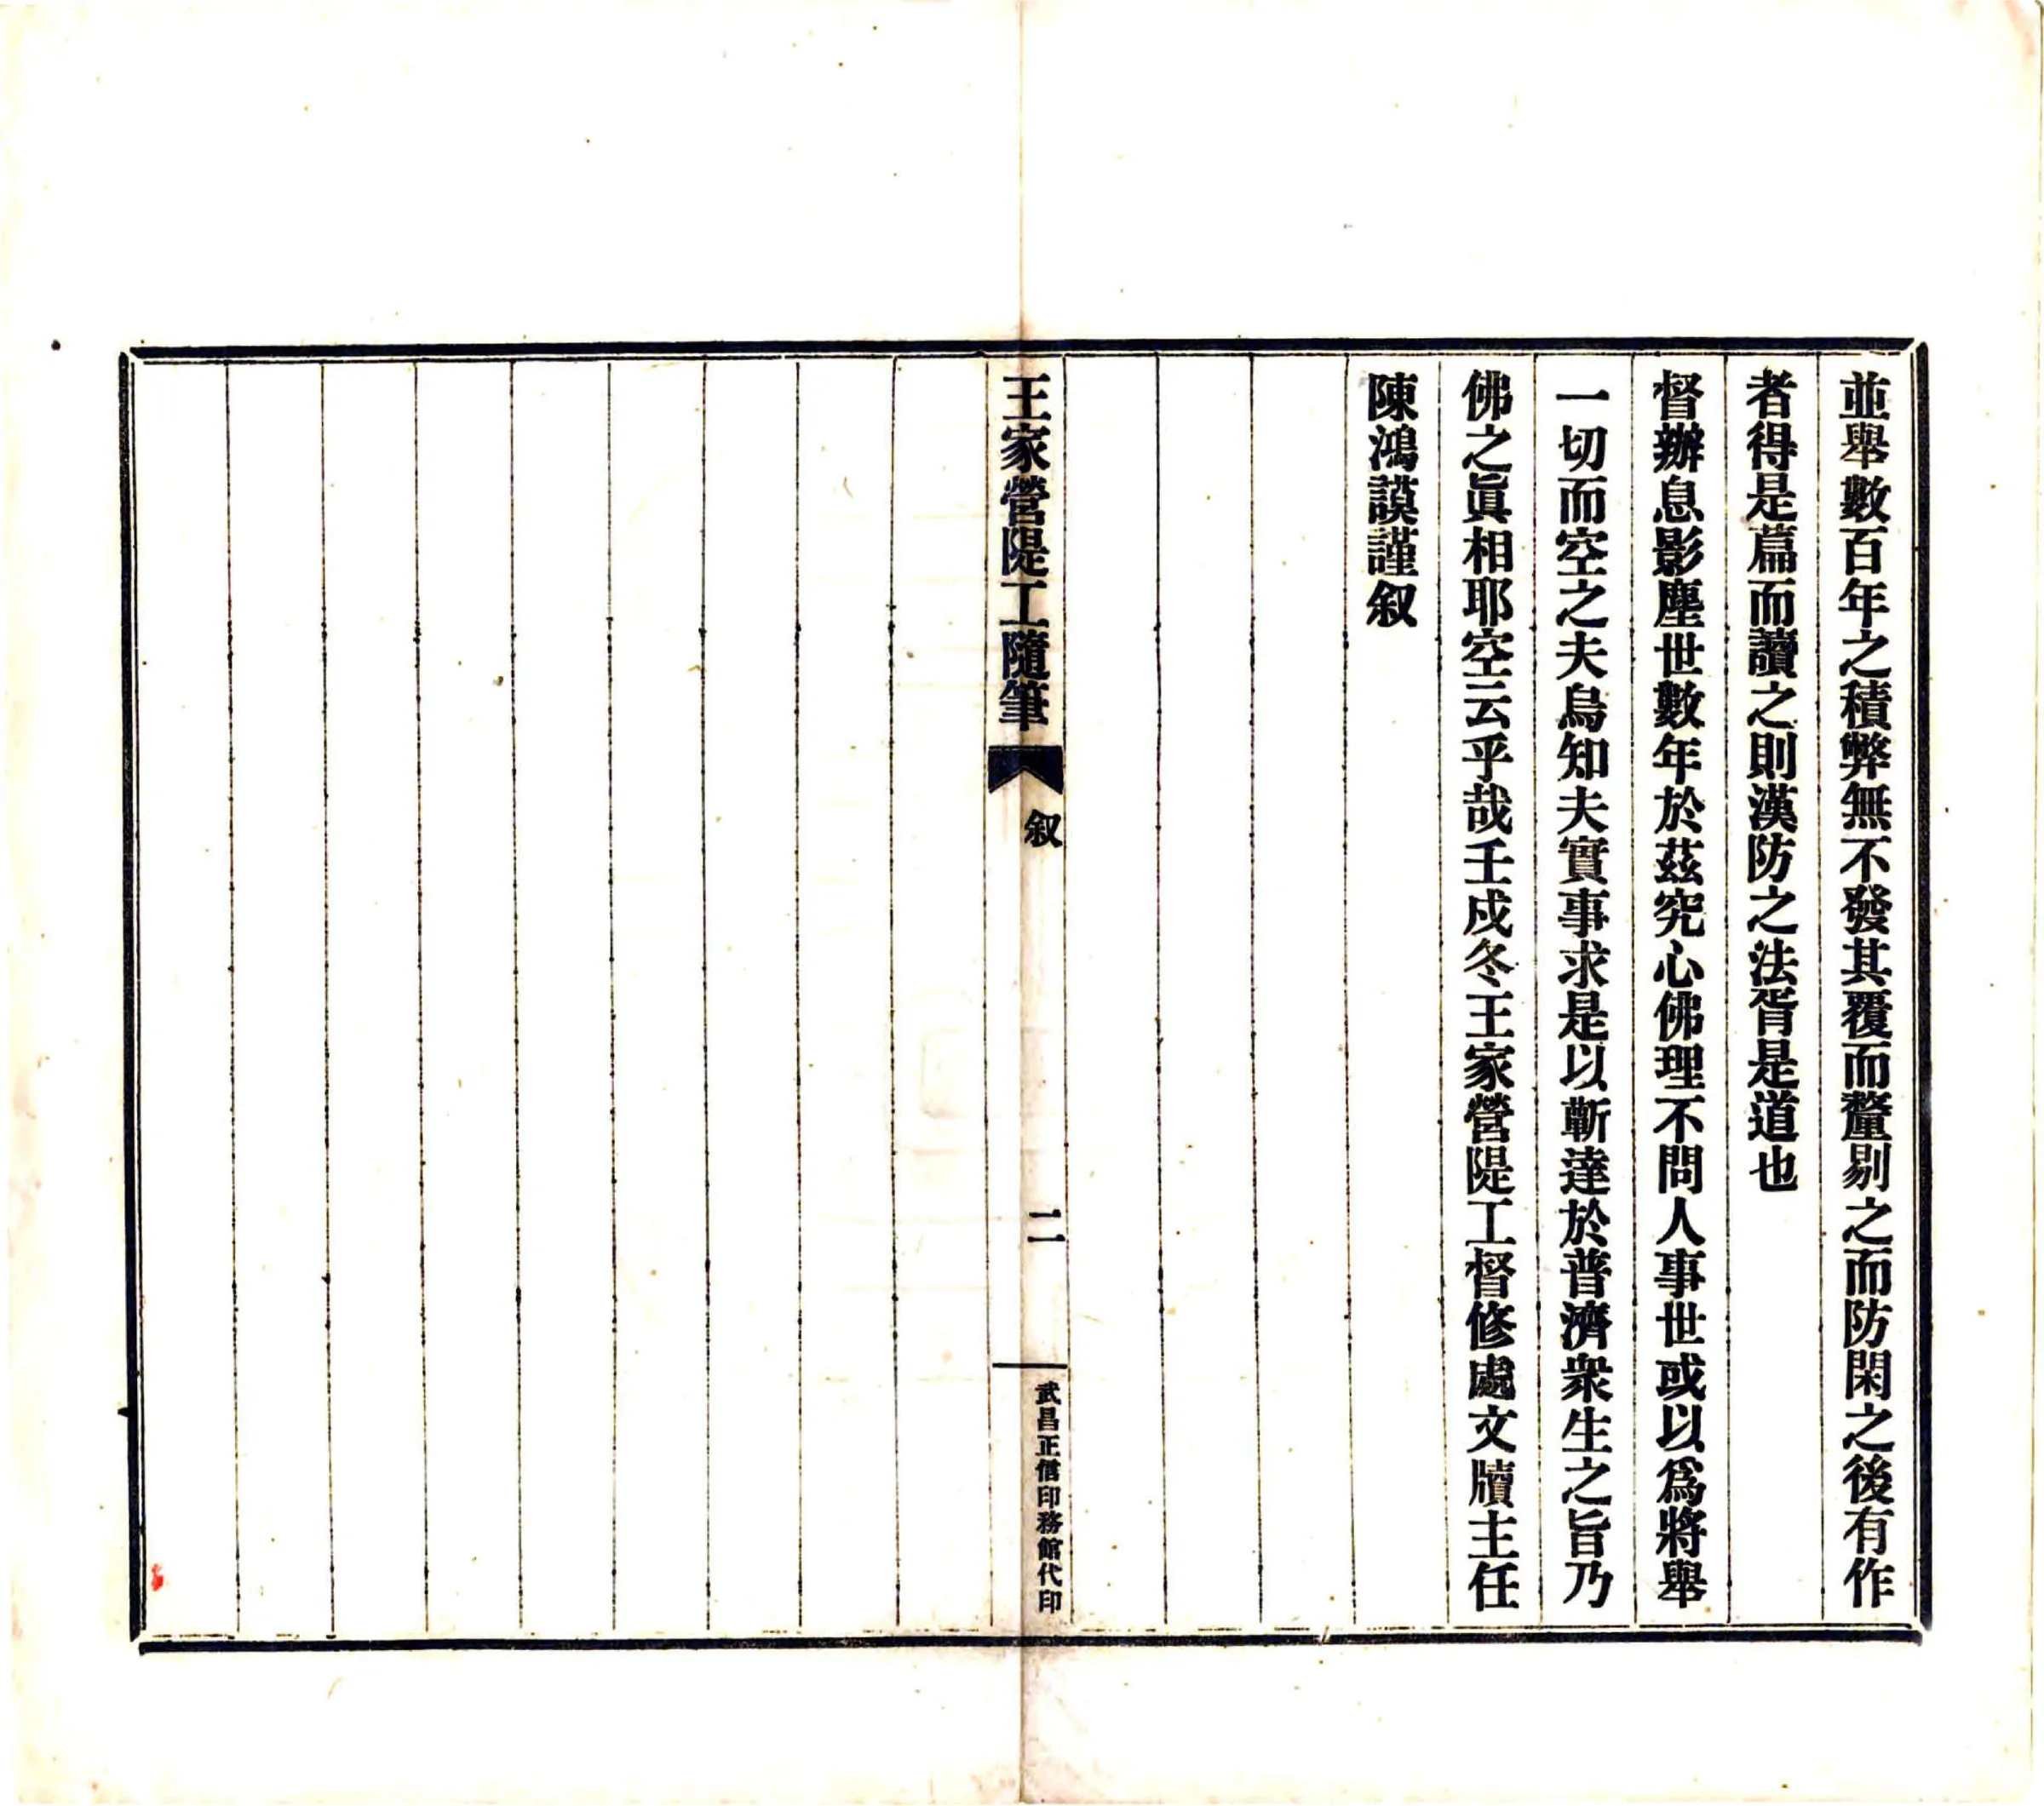 並舉數百年之積弊無不發其覆而釐剔之而防閑之後有作
者得是篇而讀之則漢防之法胥是道也
督辦息影塵世數年於茲究心佛理不問人事世或以爲將舉
一切而空之夫烏知夫實事求是以蘄達於普濟衆生之旨乃
佛之眞相耶空云乎哉壬戌冬王家營隄工督修處文牘主任
陳鴻謨謹叙
王家營隄工隨筆
叙
二
武昌正信印務館代印